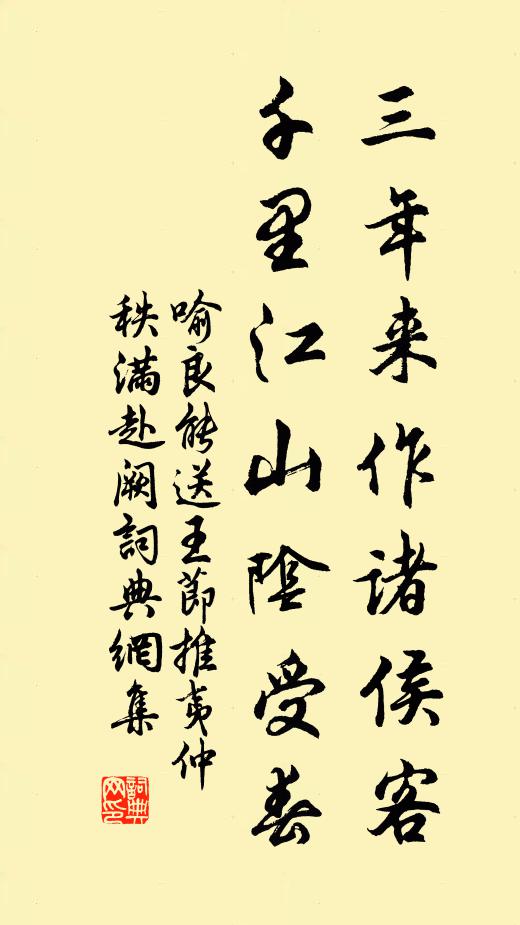 三年来作诸侯客
千里江山陰受春
喻良能送王節推夷仲
秩满赴阙詞典網集
詞典
网印